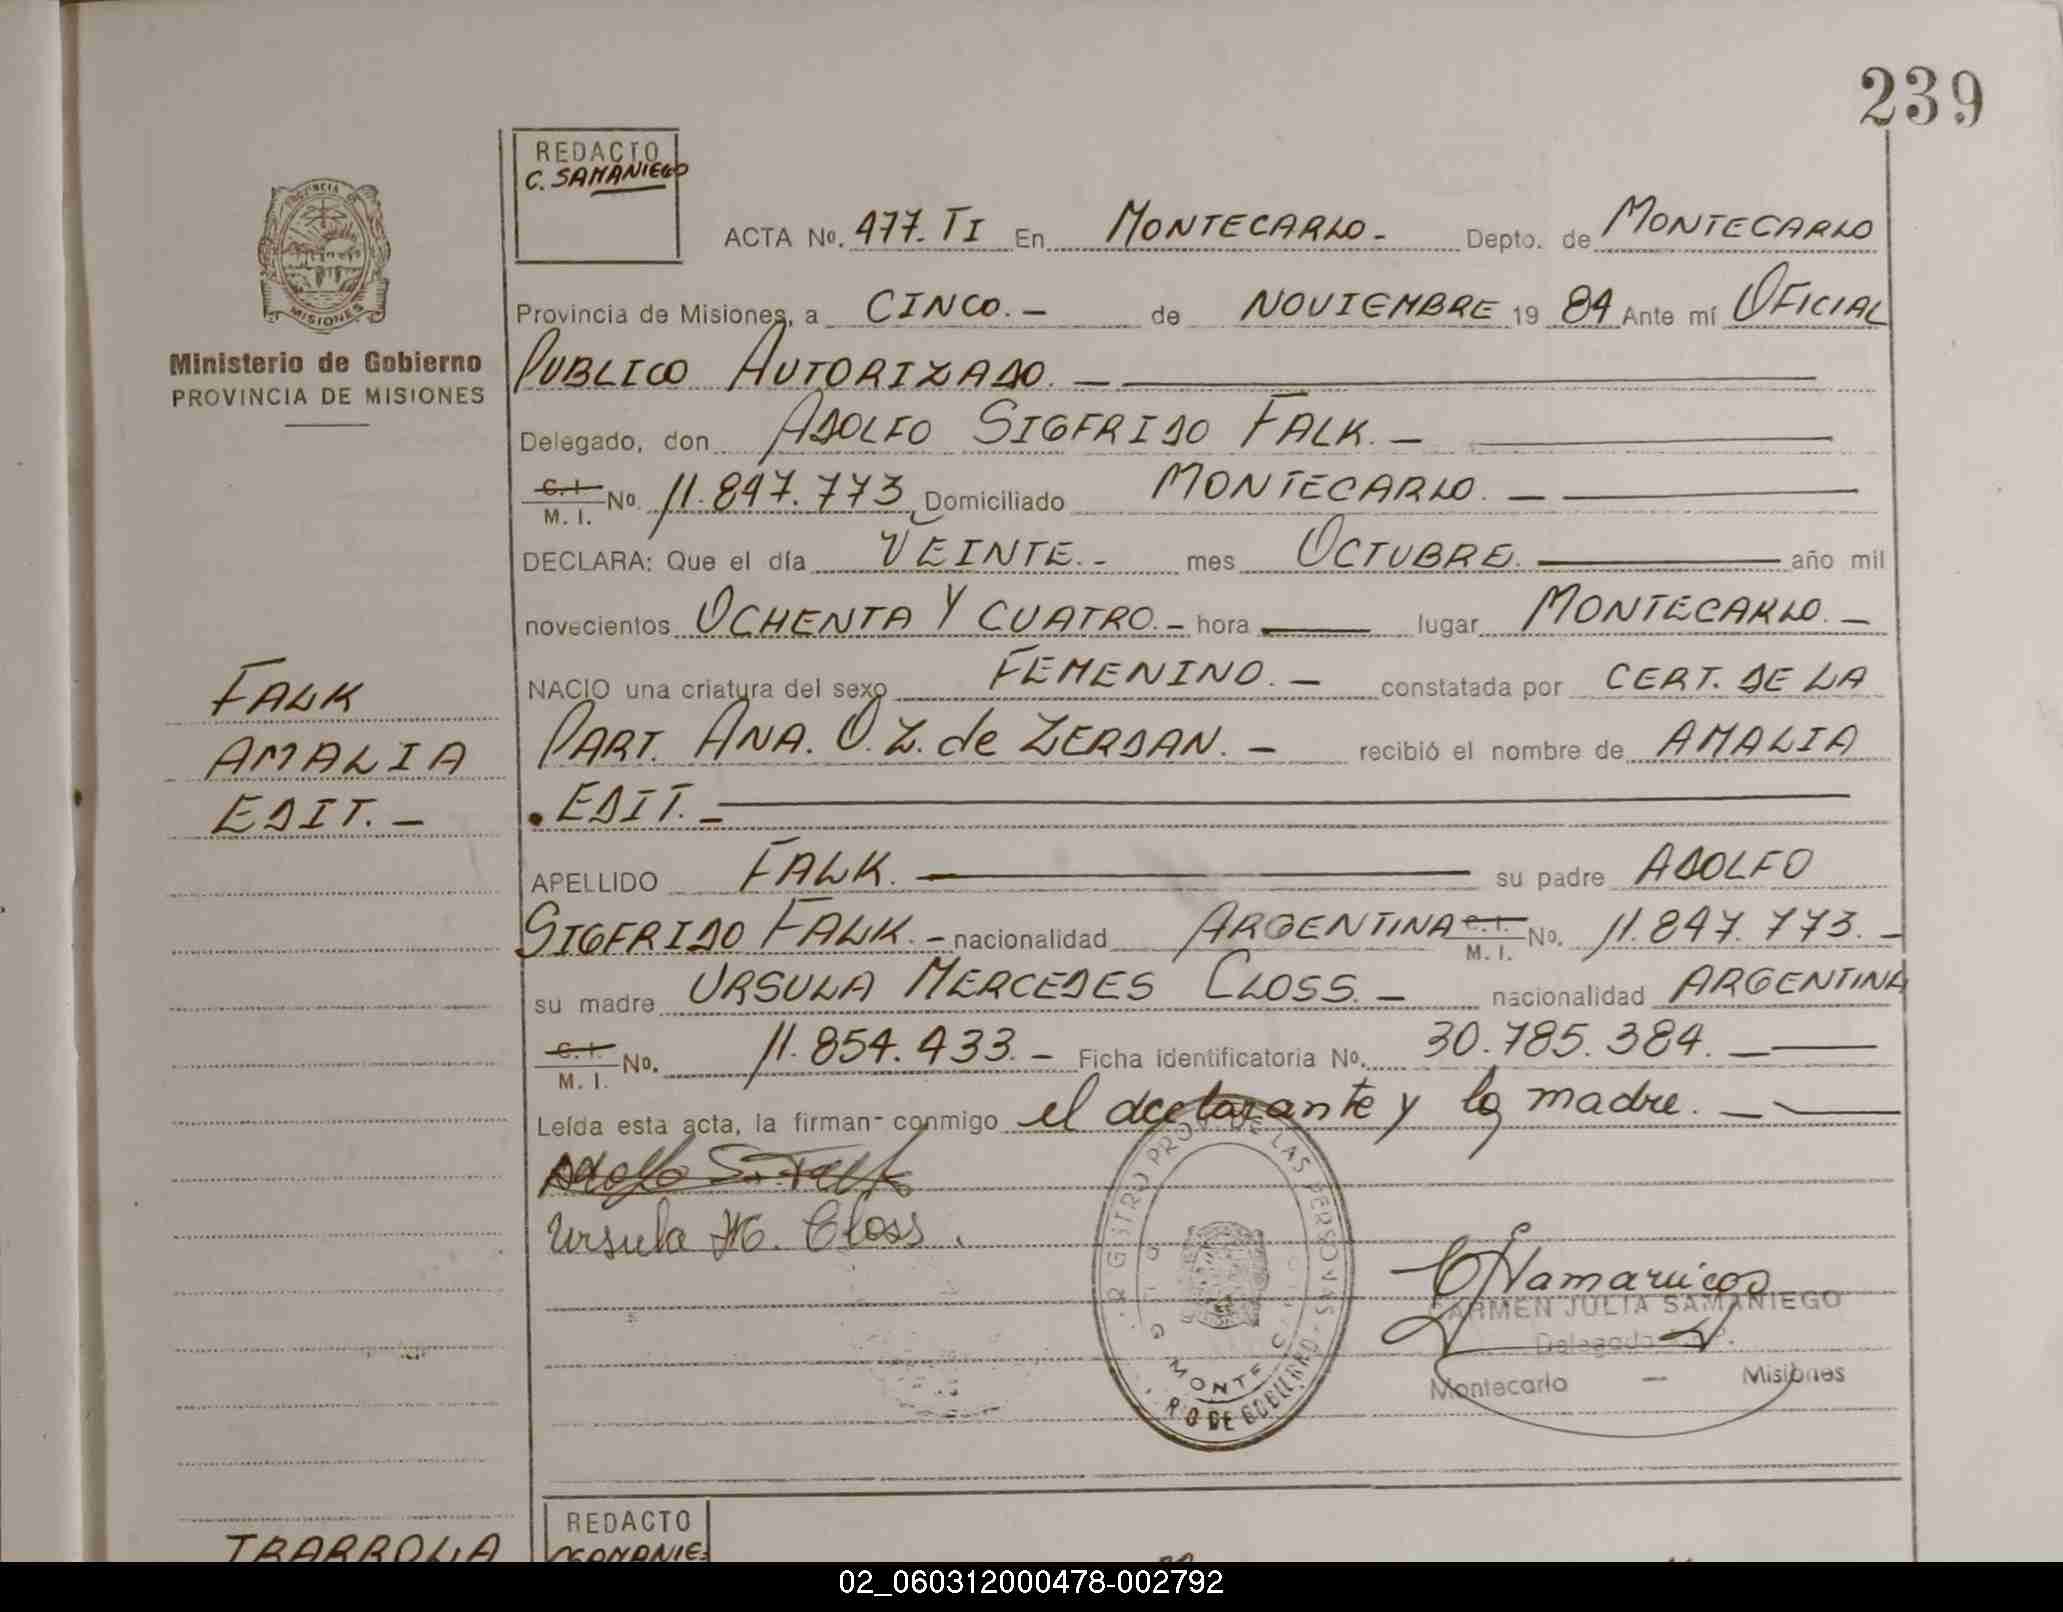 239
REDACTO
C. SAMANIEGO
ACTA No. 477. TI En MONTECARLO.- Depto. de MONTECARLO
PROVINCIA DE
MISIONES
Provincia de Misiones, a CINCO.- de NOVIEMBRE 19 84 Ante mí OFICIAL
Ministerio de Gobierno
PROVINCIA DE MISIONES
PUBLICO AUTORIZADO. —
Delegado, don ADOLFO SIGFRIDO FALK. —
C. I. M. I. No. 11.847.773 Domiciliado MONTECARLO. —
DECLARA: Que el día VEINTE.- mes OCTUBRE. — año mil
novecientos OCHENTA Y CUATRO.- hora — lugar MONTECARLO. —
FALK
AMALIA
EDIT. —
NACIO una criatura del sexo FEMENINO. — constatada por CERT. DE LA
PART. ANA. O. Z. de ZERDAN. — recibió el nombre de AMALIA
. EDIT. —
APELLIDO FALK. — su padre ADOLFO
SIGFRIDO FALK. - nacionalidad ARGENTINA C. I. M. I. No. 11.847.773. -
su madre URSULA MERCEDES CLOSS. — nacionalidad ARGENTINA
C. I. M. I. No. 11.854.433. - Ficha identificatoria No. 30.785.384. —
Leída esta acta, la firman- conmigo el declarante y la madre. —
Adolfo S. Falk
Ursula M. Closs .
REGISTRO PROV. DE LAS PERSONAS
MONTE
RIO DE GOBIERNO
CARMEN JULIA SAMANIEGO
Delegada
Montecarlo — Misiones
IBARROLA
REDACTO
02_060312000478-002792